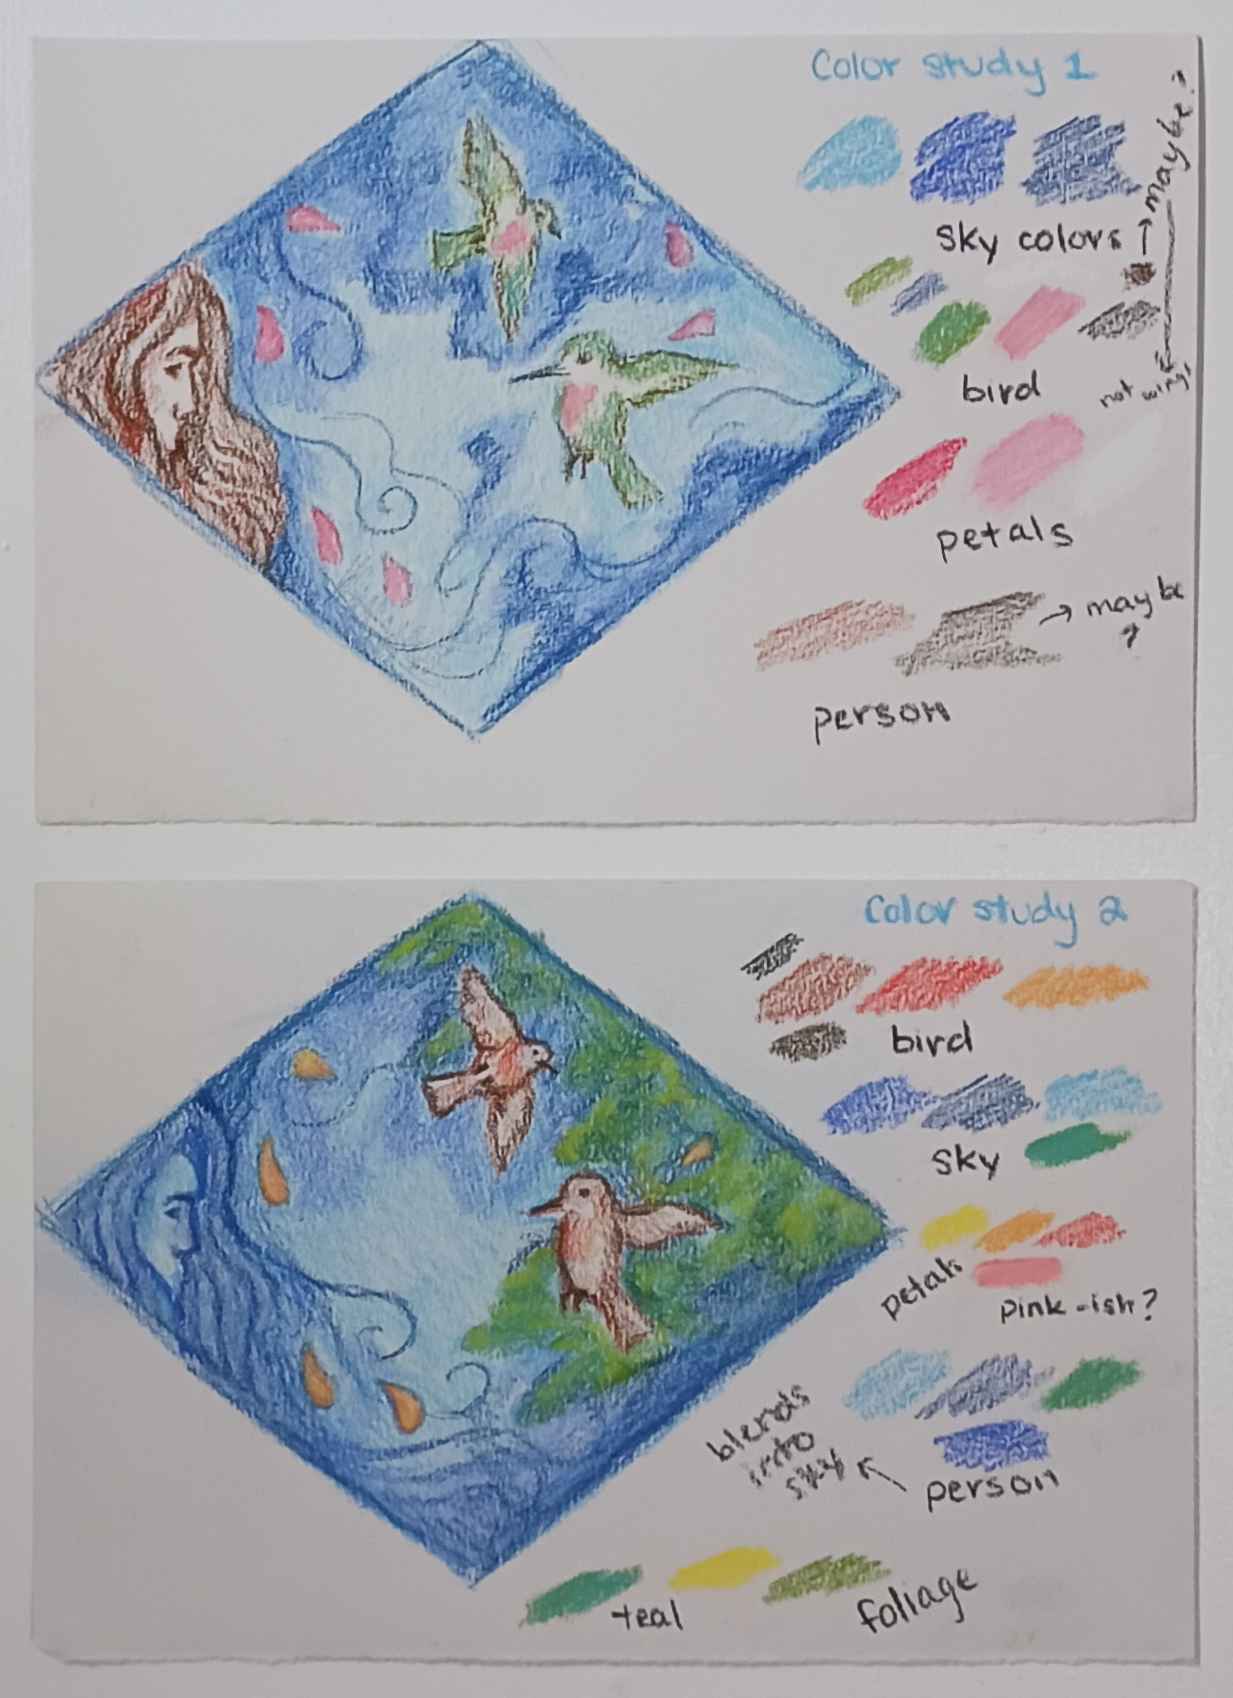 Color study 1
maybe?
sky colors
bird
not wings
petals
maybe
?
person
Color study 2
bird
sky
petals
pink-ish?
blends
into
sky
person
teal
foliage